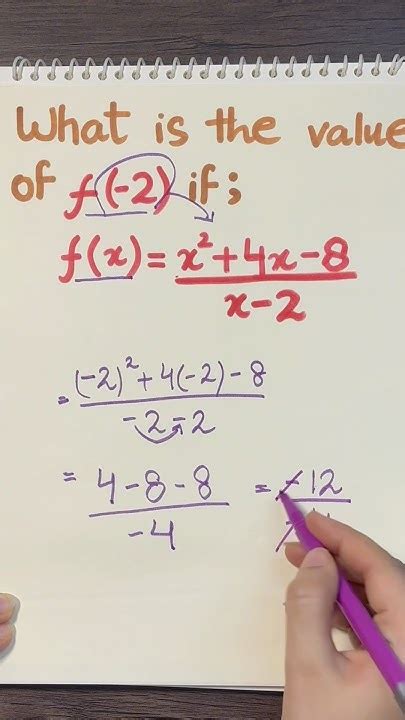 What is the value
of f(-2) if;
f(x) = x²+4x-8
x-2
= (-2)²+4(-2)-8
-2-2
= 4-8-8 = -12
-4